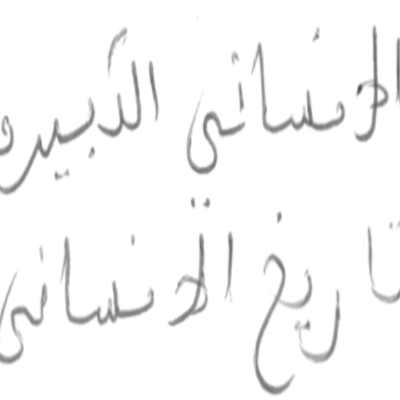 الانساني الكبير و
تاريخ الانساني